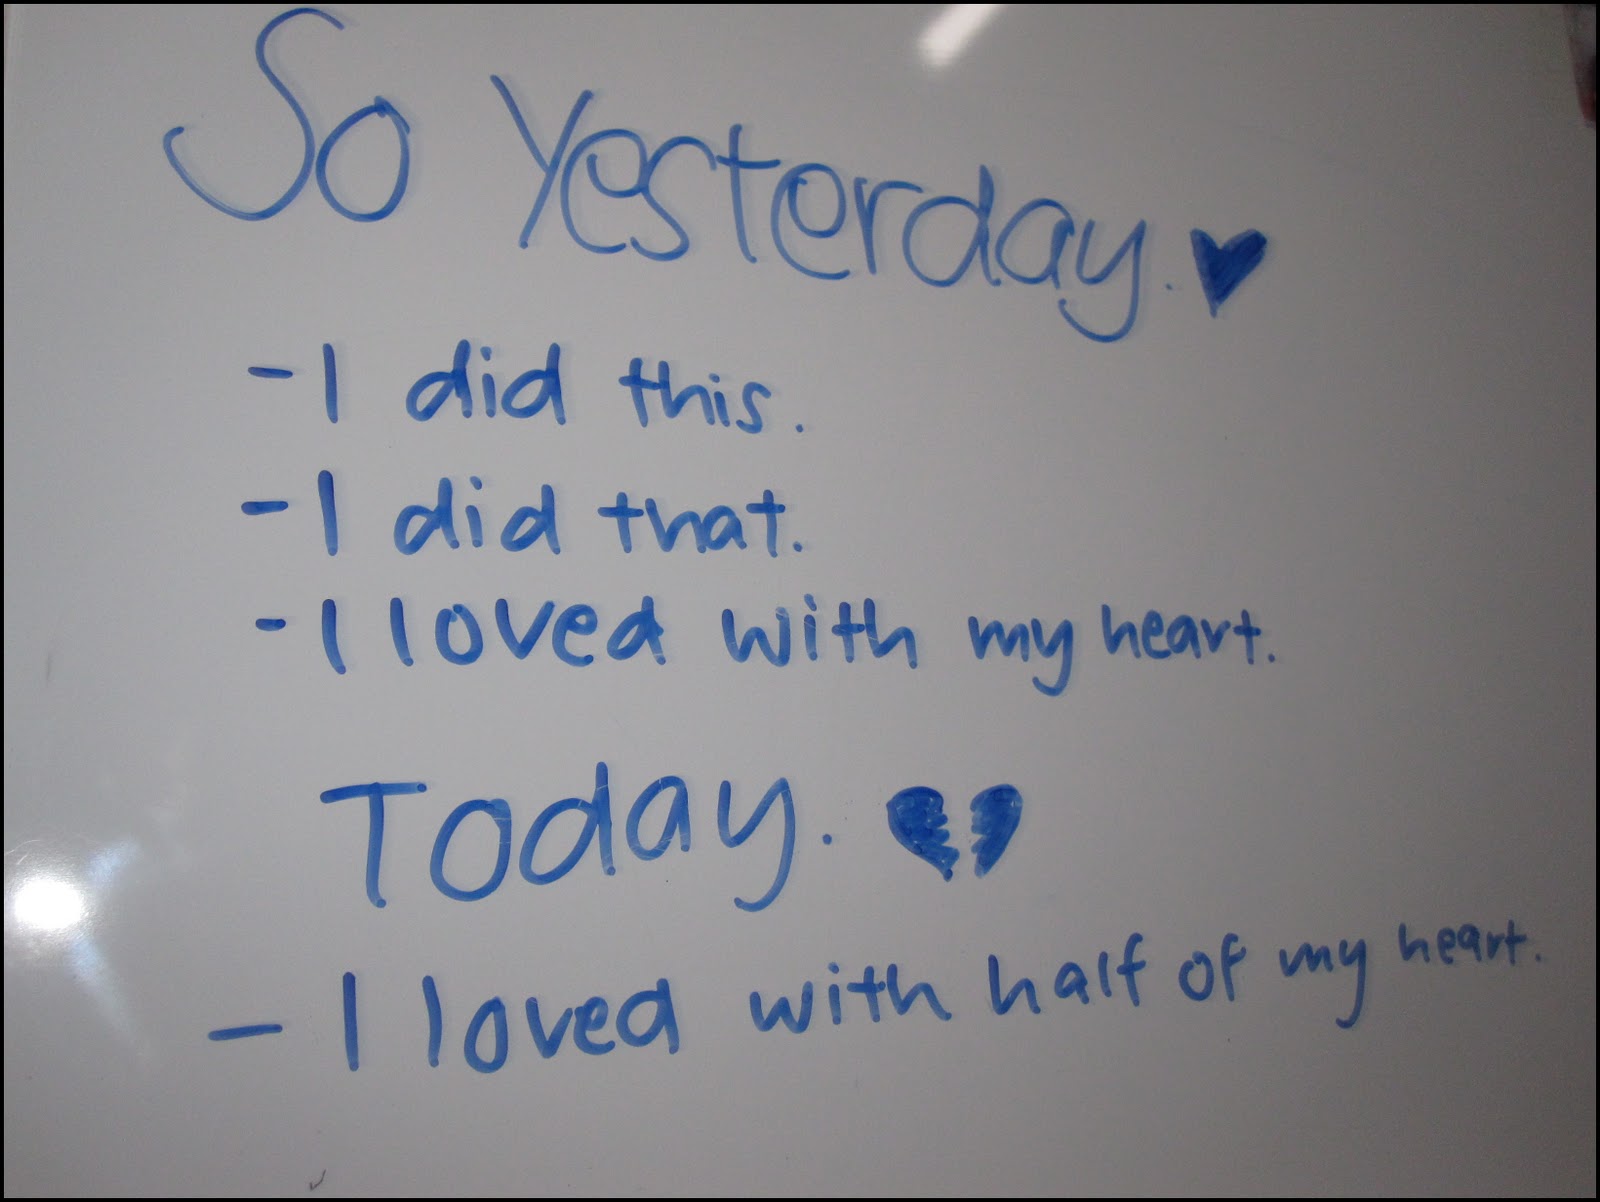 So Yesterday.
- I did this.
- I did that.
- I loved with my heart.
Today.
- I loved with half of my heart.